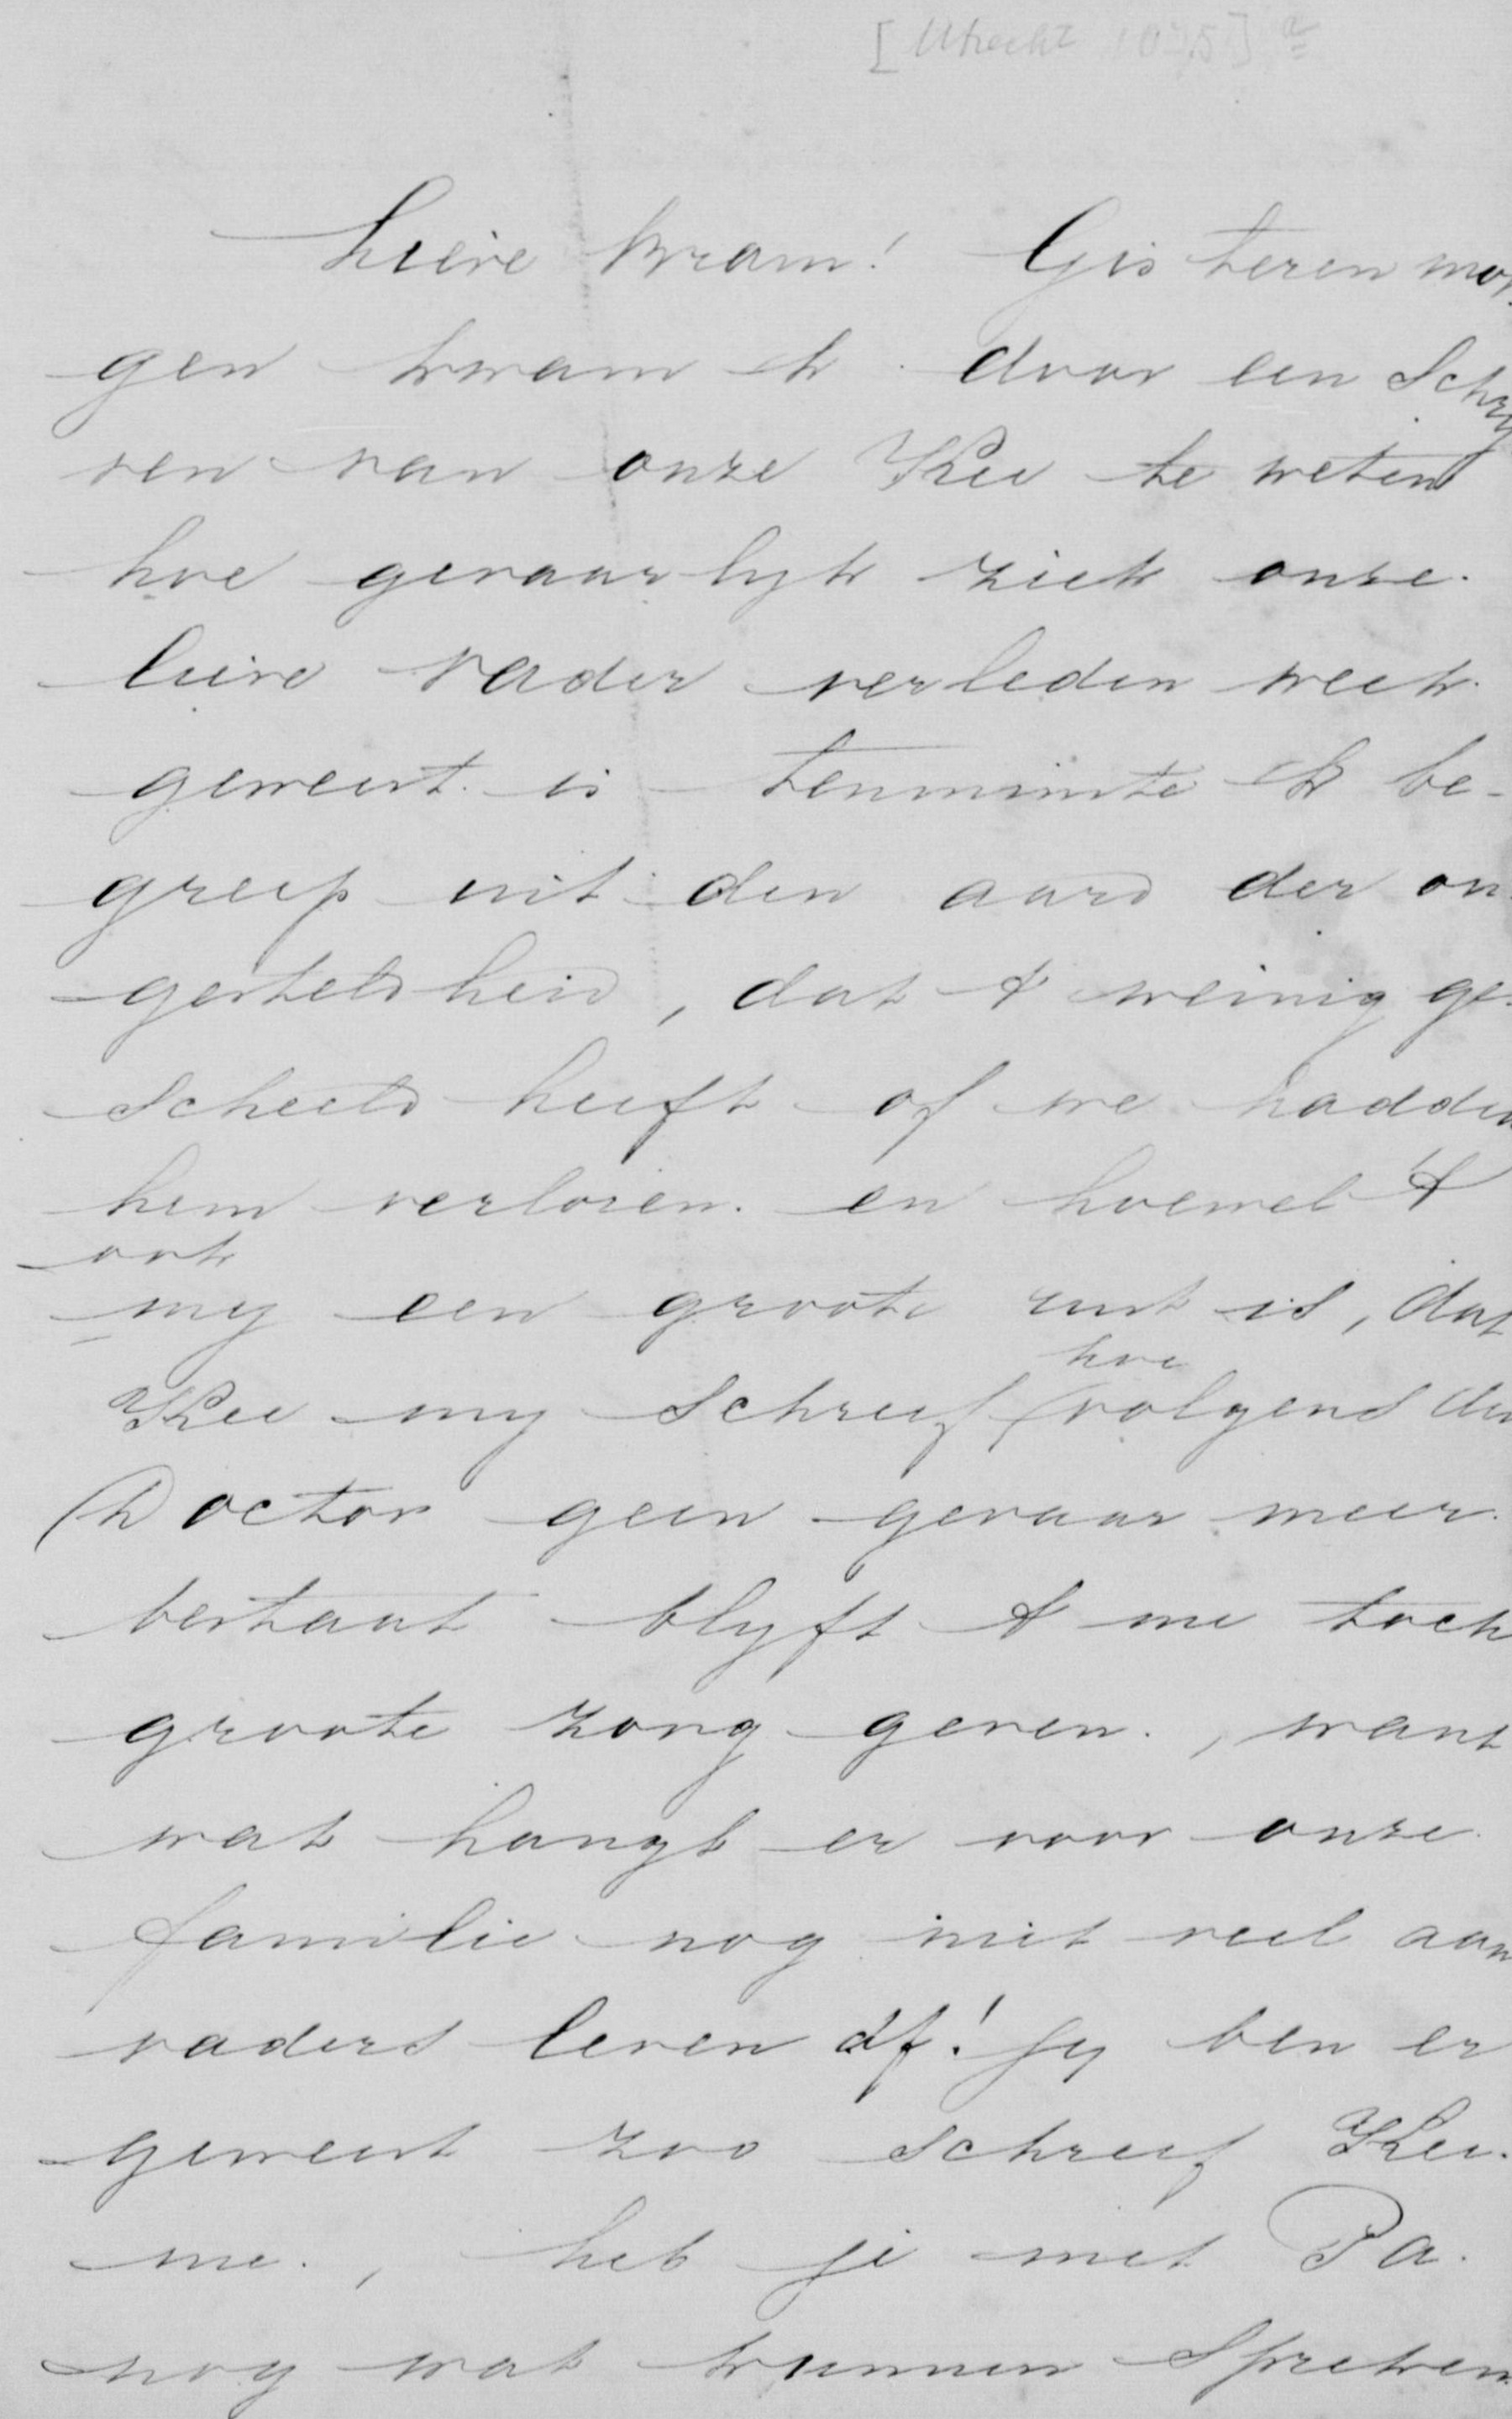 [Utrecht 1875] a
Lieve Bram! Gisteren mor
gen kwam ik door een schry
ven van onze Kee te weten
hoe gevaarlyk ziek onze
lieve vader verleden week
geweest is tenminste ik be-
greep uit den aard der on
gesteldheid, dat 't weinig ge
scheeld heeft of we hadden
hem verloren. en hoewel 't
ook
my een groote rust is, dat
hoe
Kee my schreef volgens den
Doctor geen gevaar meer
bestaat blyft 't me toch
groote zorg geven., want
wat hangt er voor onze
familie nog niet veel aan
vaders leven af! Jy ben er
geweest zoo schreef Kee
me., heb je met Pa
nog wat kunnen spreken